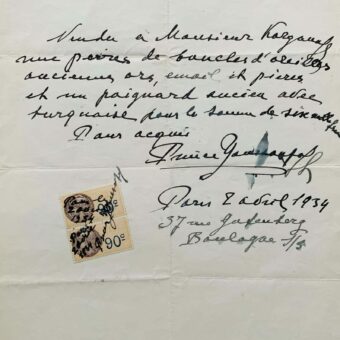 Vendu à Monsieur Kolganoff
une paires de boucles d'oreilles
anciennes ors, email et pierres
et un poignard ancien avec
turquoise pour la somme de six mille
Pour acquis
Prince Youssoupoff
Paris 2 avril 1934
37 rue Gutenberg
Boulogne s/s
90c